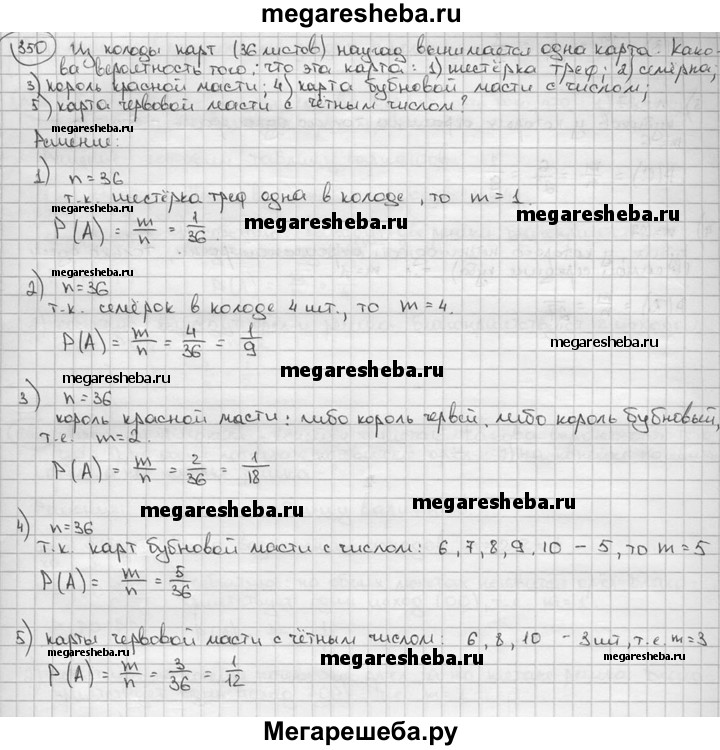 megaresheba.ru
350 Из колоды карт (36 листов) наугад вынимается одна карта. Како-
ва вероятность того, что эта карта: 1) шестёрка треф; 2) семёрка;
3) король красной масти; 4) карта бубновой масти с числом;
5) карта червовой масти с чётным числом?
megaresheba.ru megaresheba.ru
Решение:
1) n = 36
т.к. шестёрка треф одна в колоде, то m = 1.
megaresheba.ru
P(A) = m/n = 1/36.
megaresheba.ru
2) n = 36
т.к. семёрок в колоде 4 шт., то m = 4.
P(A) = m/n = 4/36 = 1/9
megaresheba.ru
megaresheba.ru
3) n = 36
король красной масти: либо король червей, либо король бубновый,
т.е. m = 2.
P(A) = m/n = 2/36 = 1/18
megaresheba.ru
megaresheba.ru
4) n = 36
т.к. карт бубновой масти с числом: 6, 7, 8, 9, 10 – 5, то m = 5
P(A) = m/n = 5/36
megaresheba.ru
megaresheba.ru
5) карты червовой масти с чётным числом: 6, 8, 10 – 3 шт, т.е. m = 3
megaresheba.ru
megaresheba.ru
P(A) = m/n = 3/36 = 1/12
Мегарешеба.ру